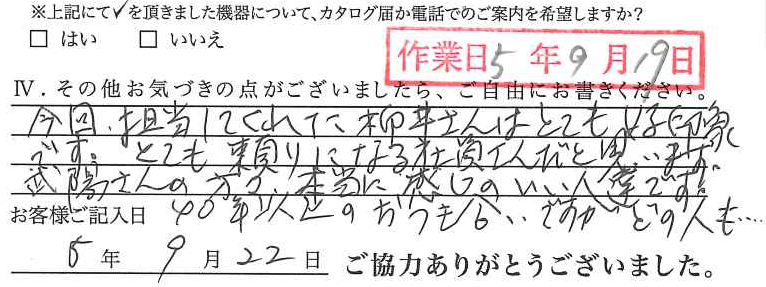 ※上記にて✓を頂きました機器について、カタログ届か電話でのご案内を希望しますか？
□ はい □ いいえ
作業日5年9月19日
Ⅳ．その他お気づきの点がございましたら、ご自由にお書きください。
今回、担当してくれた柳井さんはとても好印象
です。とても頼りになる社員さんだと思います。
武陽さんの方々、本当に感じのいい人達です。
お客様ご記入日 40年以上のおつき合いですがどの人も…
5年9月22日 ご協力ありがとうございました。